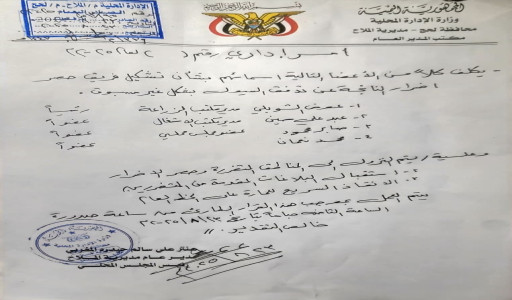 الجمهورية اليمنية
وزارة الادارة المحلية
محافظة لحج - مديرية الملاح
مكتب المدير العام
الادارة المحلية م/ الملاح - م/ لحج
أمر إداري رقم ( ) لعام ٢٠٢٥م
- يكلف كلاً من الاعضاء التالية اسمائهم بشأن تشكيل فريق حصر
اضرار الناتجة عن تدفق السيول بشكل غير مسبوق.
١- عوض الشويلي مدير مكتب الزراعة رئيساً
٢- عبد علي حسن مدير مكتب الاشغال عضواً
٣- صابر محمود عضو مجلس محلي عضواً
٤- محمد نعمان عضواً
وعلية / يتم النزول الى المناطق المتضررة وحصر الاضرار
٢- استقبال البلاغات المقدمة من المتضررين
٣- الانقاذ السريع للمارة على الخط العام
يتم العمل بموجب هذا القرار من ساعة صدوره
الساعة الثامنة صباحاً بتاريخ ٢٣/٨/٢٠٢٥
خالص التقدير،،
علي سالم حيدره
مدير عام مديرية الملاح
رئيس المجلس المحلي